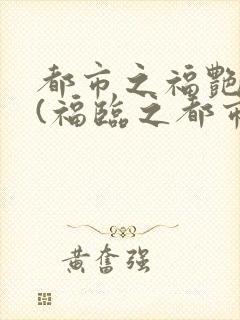 都市之福艷
(福臨之都市
黄奮强